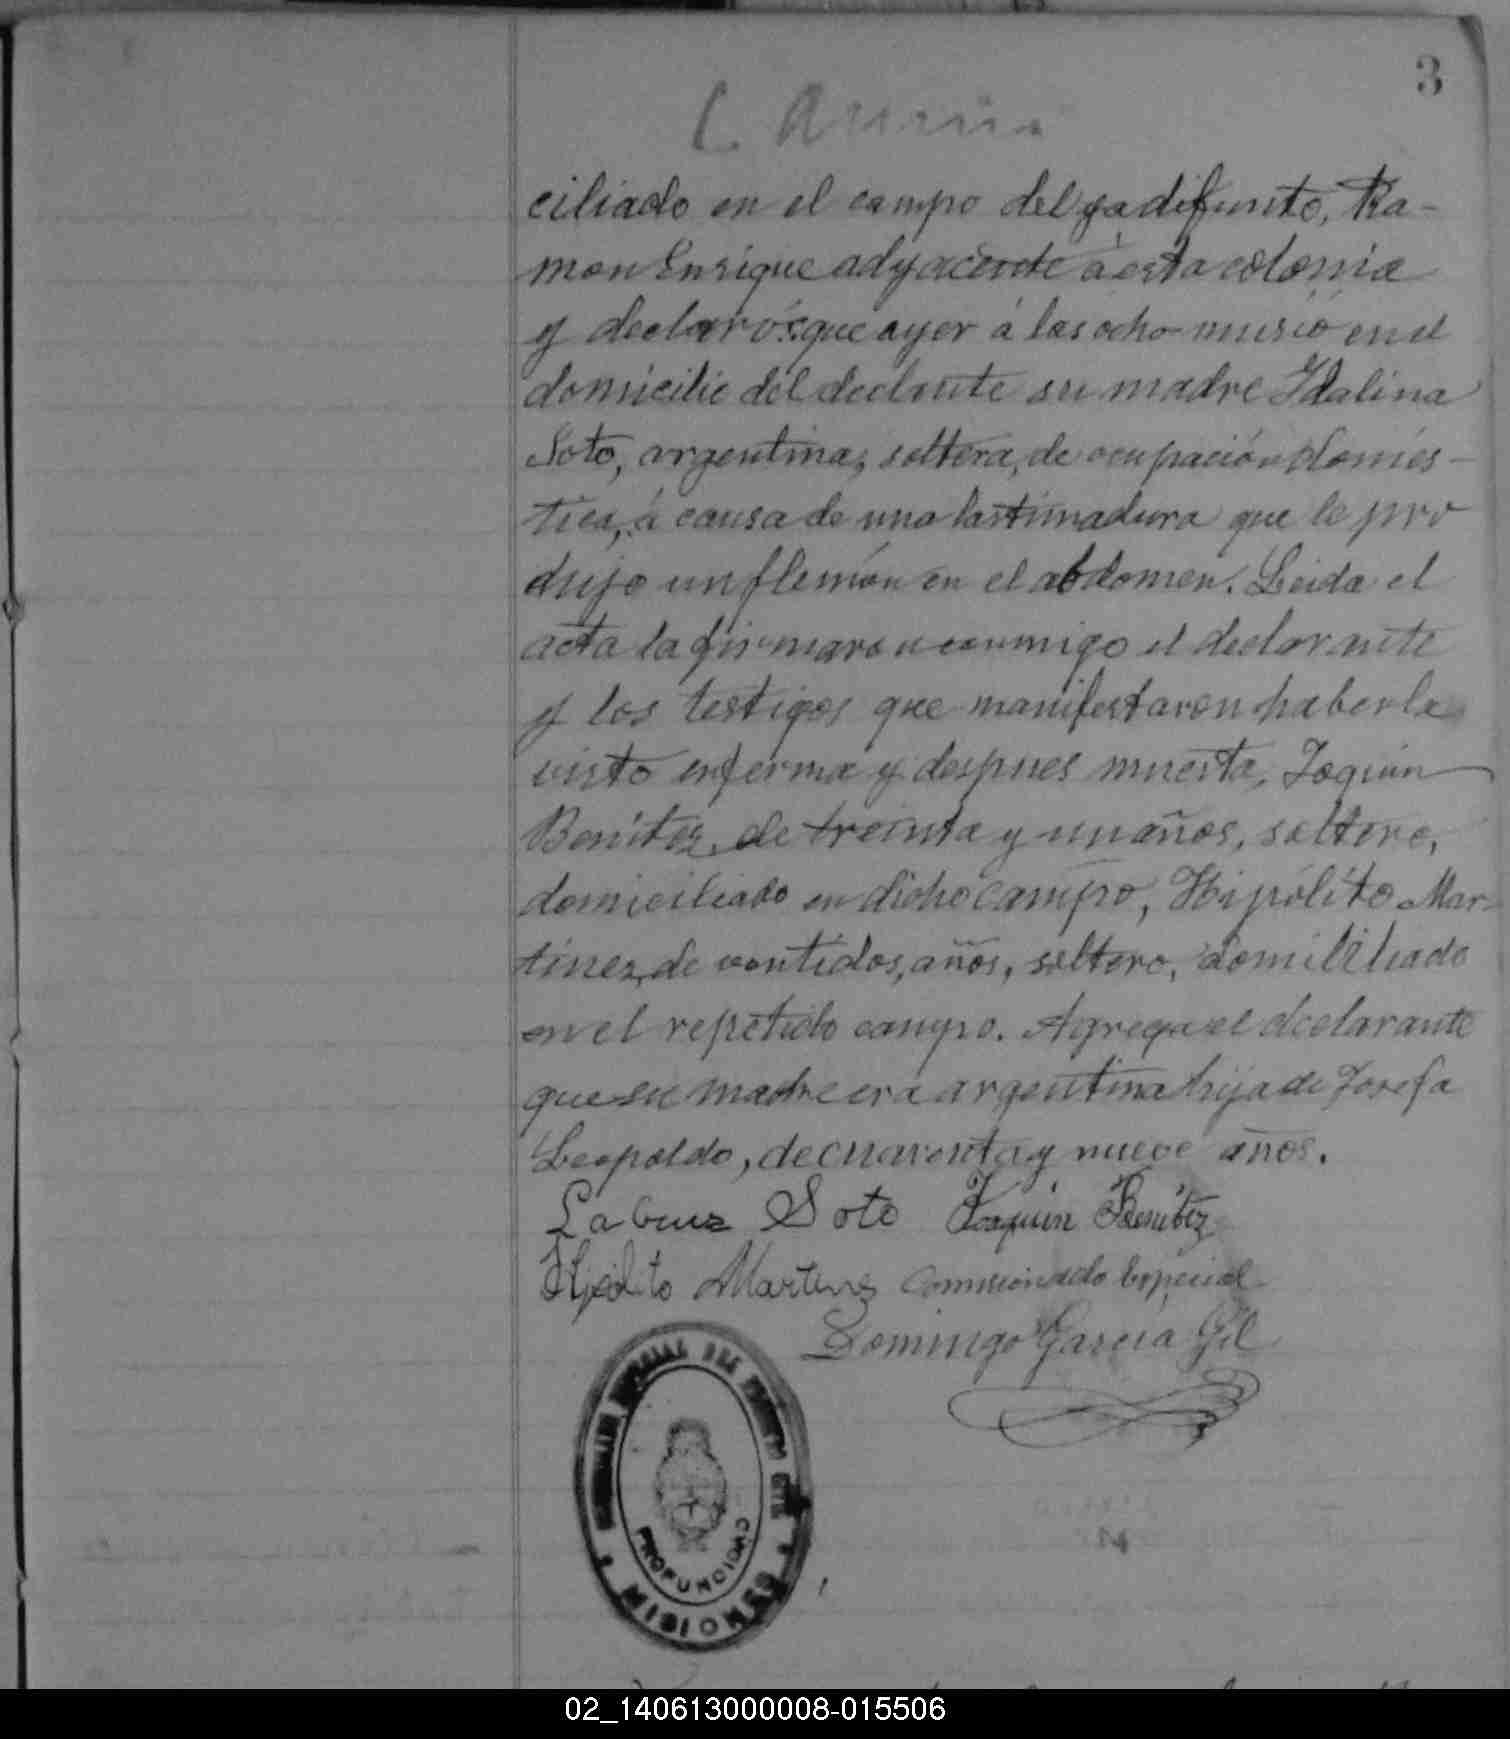 3
ciliado en el campo del ya difunto, Ra-
mon Enrique adyacente á esta colonia
y declaró: que ayer á las ocho murió en el
domicilio del declante su madre Idalina
Soto, argentina, soltera, de ocupación domés-
tica, á causa de una lastimadura que le pro
dujo un flemón en el abdomen. Leida el
acta la firmaron conmigo el declarante
y los testigos que manifestaron haberla
visto enferma y despues muerta, Joaquin
Benítez, de treinta y un años, soltero,
domiciliado en dicho campo, Hipólito Mar-
tinez, de ventidos, años, soltero, domiciliado
en el repetido campo. Agrega el declarante
que su madre era argentina hija de Josefa
Leopoldo, de cuarenta y nueve años.
La Cruz Soto Joaquin Benítez
Hipolito Martinez Comisionado Especial
Domingo García Gil
PROFUNDIDAD
MISIONES
02_140613000008-015506